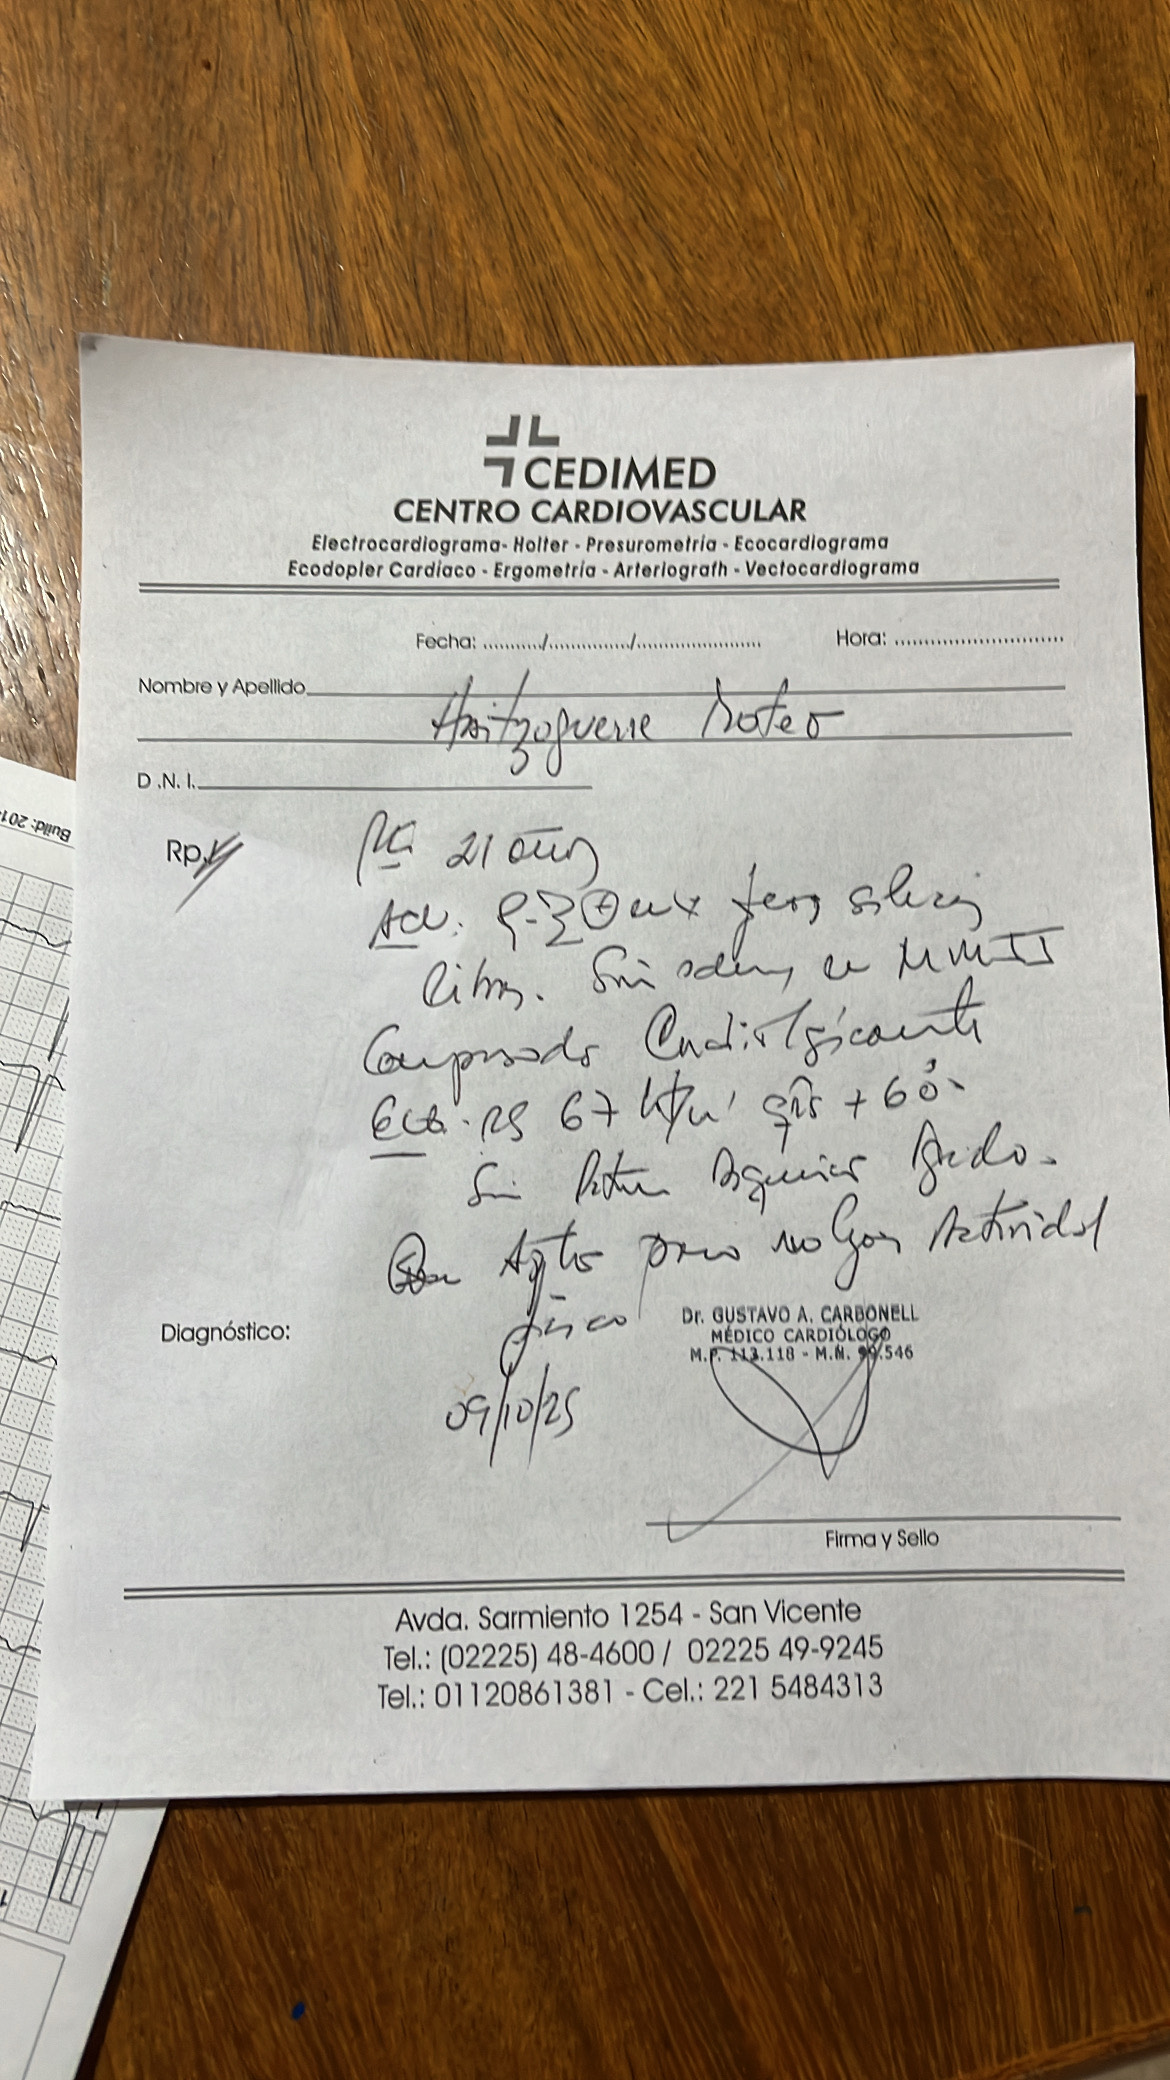 CEDIMED
CENTRO CARDIOVASCULAR
Electrocardiograma- Holter - Presurometria - Ecocardiograma
Ecodopler Cardiaco - Ergometria - Arteriografh - Vectocardiograma
Fecha: .........../.............../...................... Hora: ............................
Nombre y Apellido
Mateo
D .N. I.
Rp./
21 años
R1-R2 ⊕ en 4 focos silencios
libres. Sin edemas en MMII
Compensado Cardiológicamente
ECG. RS 67 l/m' qrs + 60°
Sin Patrón Isquémico Agudo.
Apto para realizar Actividad
física
Dr. GUSTAVO A. CARBONELL
MÉDICO CARDIÓLOGO
M.P. 113.118 - M.N. 99.546
Diagnóstico:
09/10/25
Firma y Sello
Avda. Sarmiento 1254 - San Vicente
Tel.: (02225) 48-4600 / 02225 49-9245
Tel.: 01120861381 - Cel.: 221 5484313
Build: 201